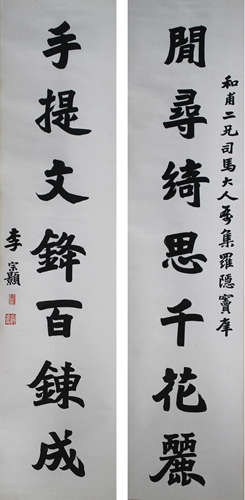 和甫二兄司馬大人屬集羅隱竇庠
閒尋綺思千花麗
手提文鋒百鍊成
李宗顥